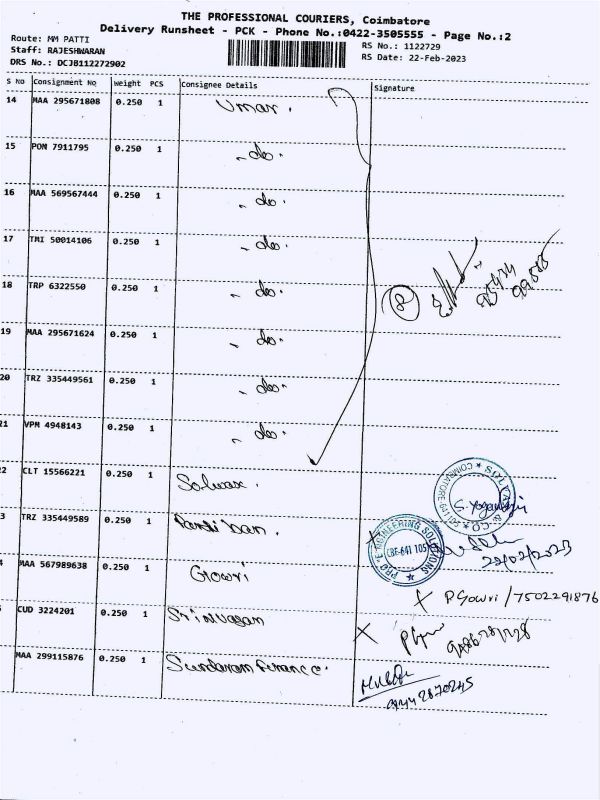 THE PROFESSIONAL COURIERS, Coimbatore
Delivery Runsheet - PCK - Phone No.:0422-3505555 - Page No.:2
Route: MM PATTI
RS No.: 1122729
Staff: RAJESHWARAN
RS Date: 22-Feb-2023
DRS No.: DCJB112272902
S No Consignment No Weight PCS Consignee Details Signature
14 MAA 295671808 0.250 1 Umar.
15 PON 7911795 0.250 1 - do -
16 MAA 569567444 0.250 1 - do -
17 TMI 50014106 0.250 1 - do -
18 TRP 6322550 0.250 1 - do - 8
19 MAA 295671624 0.250 1 - do -
20 TRZ 335449561 0.250 1 - do -
21 VPM 4948143 0.250 1 - do -
2 CLT 15566221 0.250 1
3 TRZ 335449589 0.250 1
22/02/2023
4 MAA 567989638 0.250 1 Gowri
P Gowri / 7502291876
CUD 3224201 0.250 1 Srinivasan
MAA 299115876 0.250 1 Sundaram Finance.